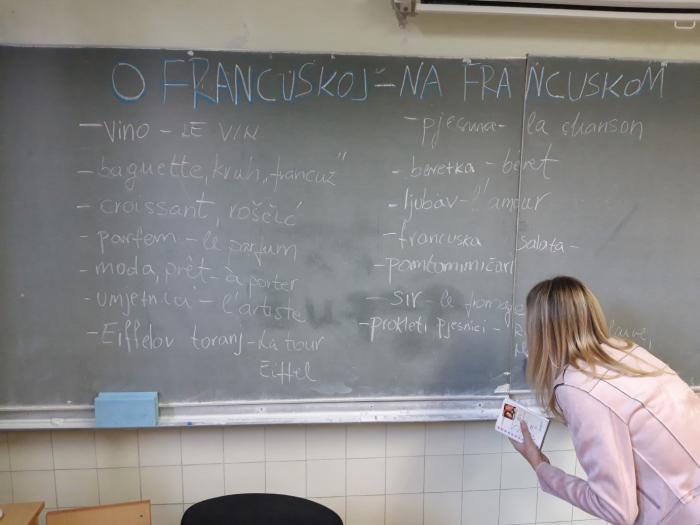 O FRANCUSKOJ - NA FRANCUSKOM
- vino - LE VIN
- baguette, kruh „francuz”
- croissant, roščić
- parfem - le parfum
- moda, prêt-à porter
- umjetnici - l'artiste
- Eiffelov toranj - La tour
Eiffel
- pjesma - la chanson
- beretka - béret
- ljubav - l'amour
- francuska salata -
- pomtomimičari
- sir - le fromage
- prokleti pjesnici -